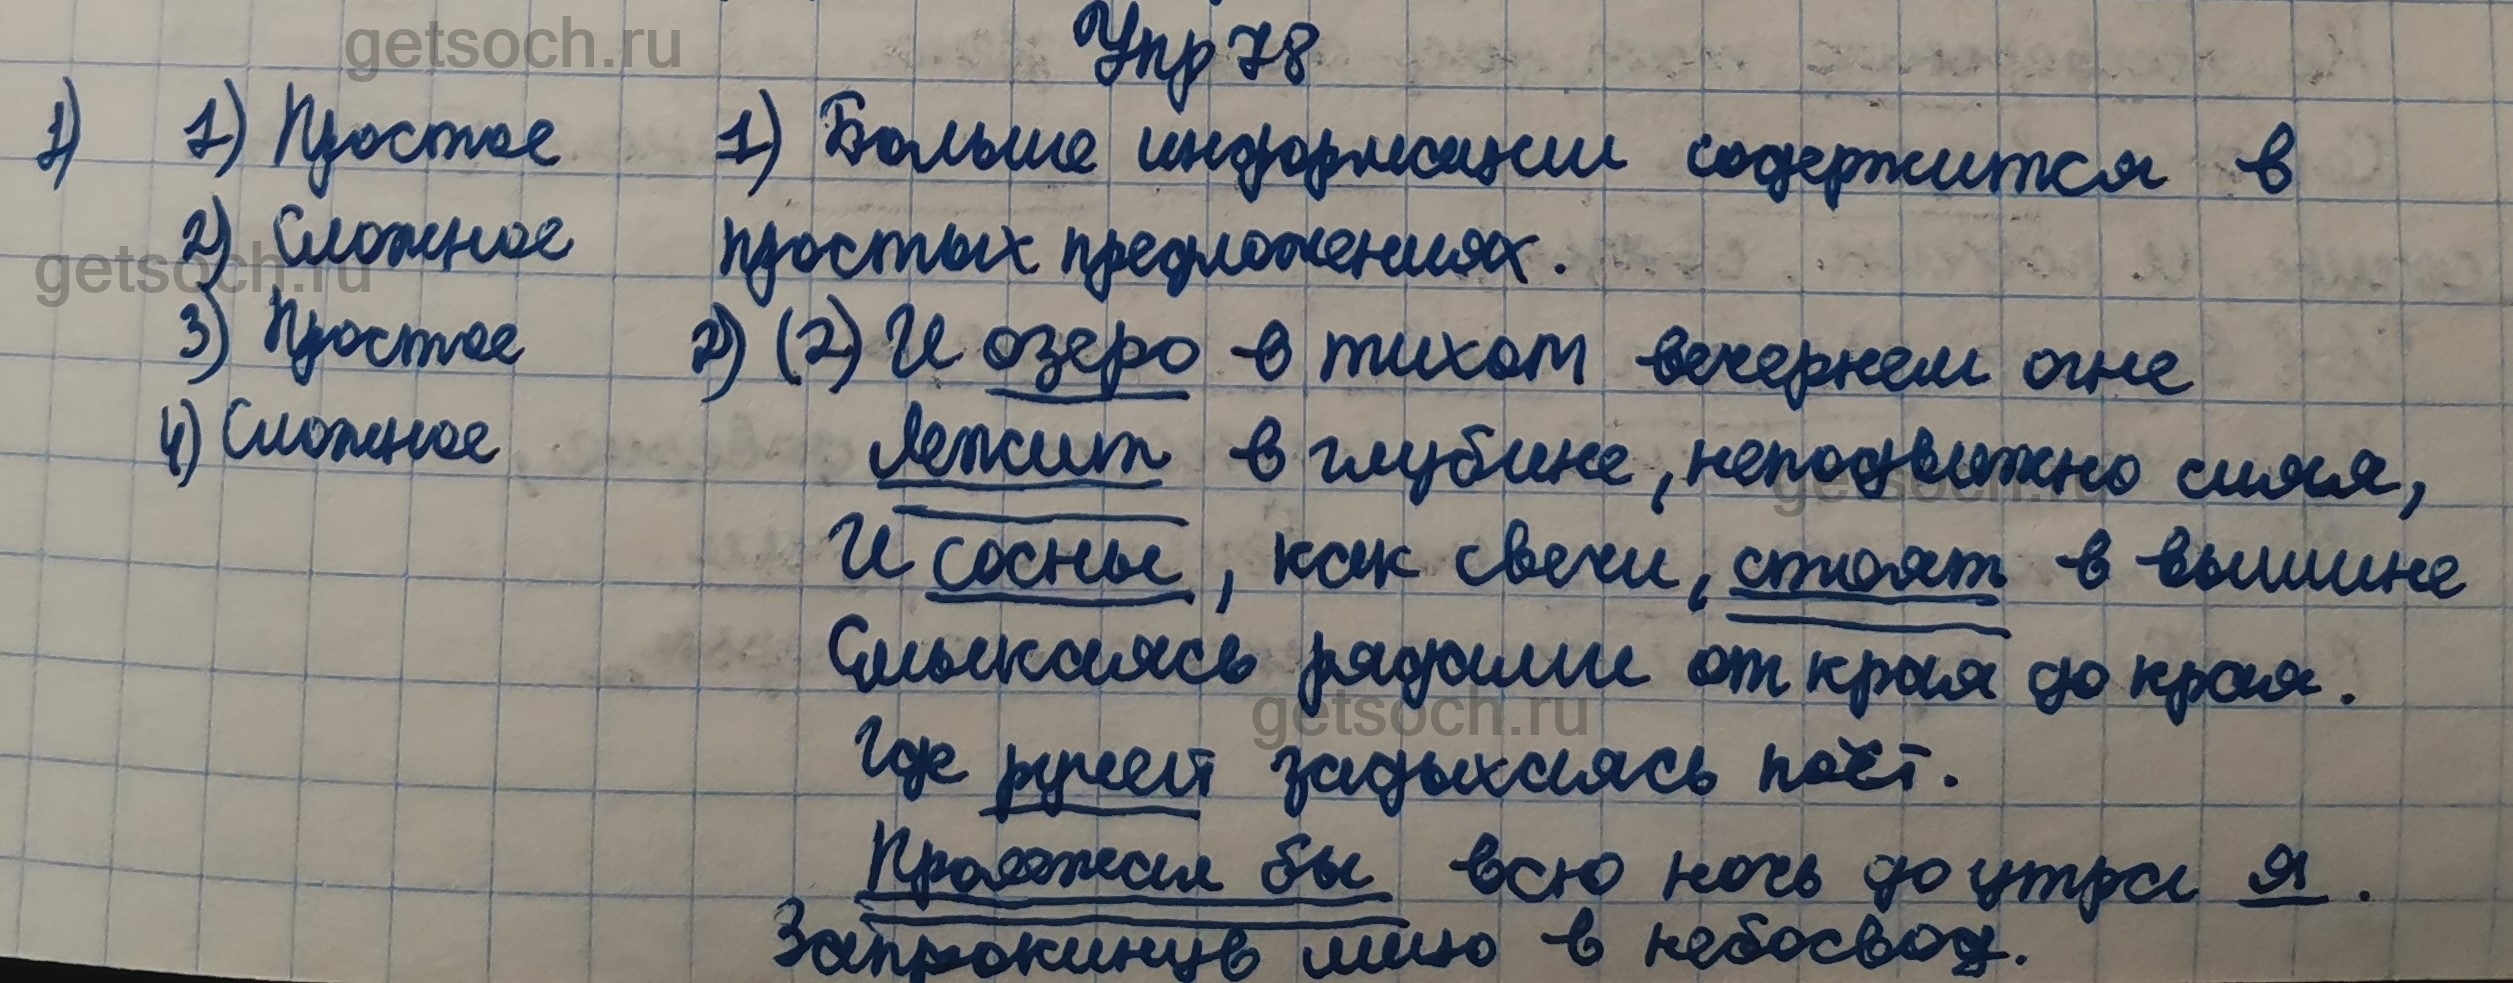 Упр 78
1) 1) Простое 1) Больше информации содержится в
2) Сложное простых предложениях.
3) Простое 2) (2) И озеро в тихом вечернем огне
4) Сложное Лежит в глубине, неподвижно сияя,
И сосны, как свечи, стоят в вышине
Смыкаясь рядами от края до края.
Где ручей задыхаясь поёт.
Пролежал бы всю ночь до утра я.
Запрокинув лицо в небосвод.
getsoch.ru
getsoch.ru
getsoch.ru
getsoch.ru